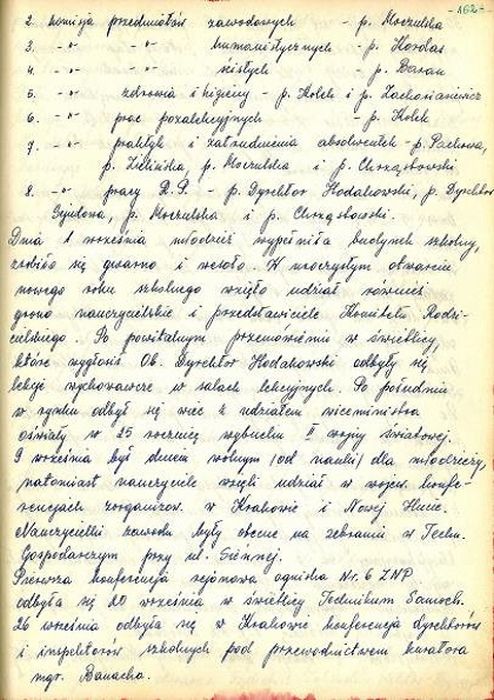 -162-
2. komisja przedmiotów zawodowych - p. Moczulska
3. -"- -"- humanistycznych - p. Kordas
4. -"- -"- ścisłych p. Baran
5. -"- zdrowia i higieny - p. Kołek i p. Zacharianiewicz
6. -"- prac pozalekcyjnych - p. Kołek
7. -"- praktyk i zatrudnienia absolwentek - p.
p. Zielińska, p. Moczulska i p. Chrząstowski,
8. -"- pracy R.P. - p. Dyrektor Kodakowski, p. Dyrektor
p. Moczulska i p. Chrząstowski.
Dnia 1 września młodzież wypełniła budynek szkolny,
zrobiło się gwarno i wesoło. W uroczystym otwarciu
nowego roku szkolnego wzięło udział również
grono nauczycielskie i przedstawiciele Komitetu Rodzi-
cielskiego. Po powitalnym przemówieniu w świetlicy,
które wygłosił Ob. Dyrektor Kodakowski odbyły się
lekcje wychowawcze w salach lekcyjnych. Po południu
w rynku odbył się wiec z udziałem wiceministra
oświaty w 25 rocznicę wybuchu II wojny światowej.
9 września był dniem wolnym (od nauki) dla młodzieży,
natomiast nauczyciele wzięli udział w wojew. konfe-
rencjach zorganizow. w Krakowie i Nowej Hucie.
Nauczycielki zawodu były obecne na zebraniu w Techn.
Gospodarczym przy ul. Siennej.
Pierwsza konferencja rejonowa ogniska Nr. 6 ZNP
odbyła się 20 września w świetlicy Technikum Samoch.
26 września odbyła się w Krakowie konferencja dyrektorów
i inspektorów szkolnych pod przewodnictwem kuratora
mgr. Banacha.